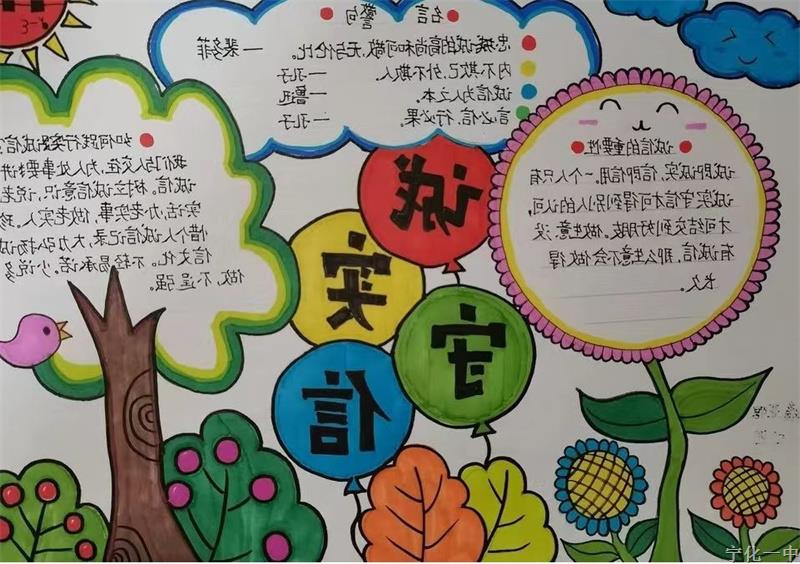 名言警句
忠诚的高尚和可敬,无与伦比。 —裴多菲
内不欺己,外不欺人。 —孔子
诚信为人之本。 —鲁迅
言必信,行必果。 —孔子
诚信的重要性
诚即诚实,信即信用。一个人只有
诚实守信才可得到别人的认可,
才可结交到好朋友。做生意没
有诚信,那么生意不会做得
长久。
诚
实
守
信
如何践行实现诚信
我们与人交往,为人处事要讲
诚信,树立诚信意识,说老
实话,办老实事,做老实人。珍
惜个人诚信记录,大力弘扬诚
信文化。不轻易承诺,小说多
做,不逞强。
宁化一中